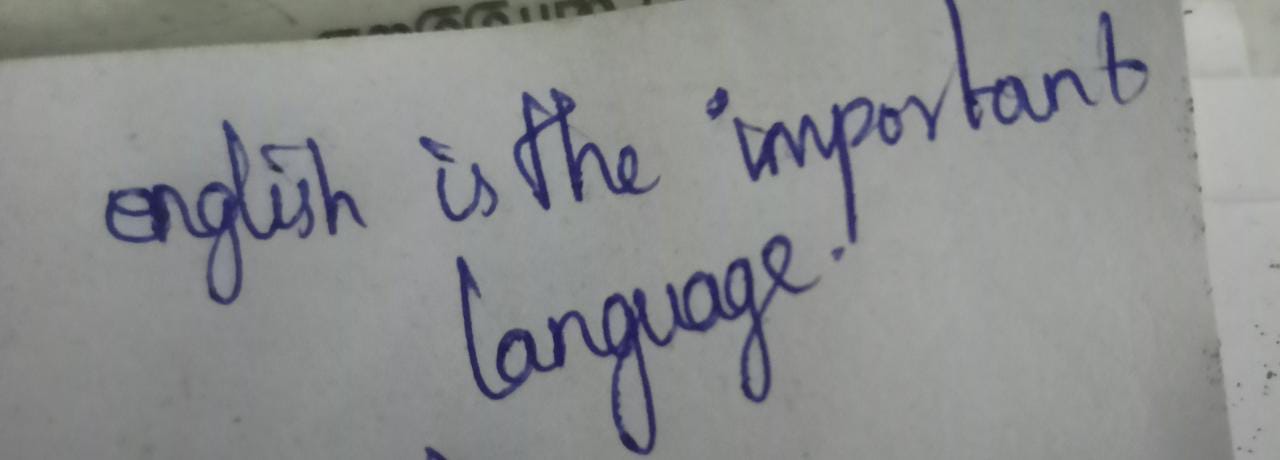 english is the important
language.